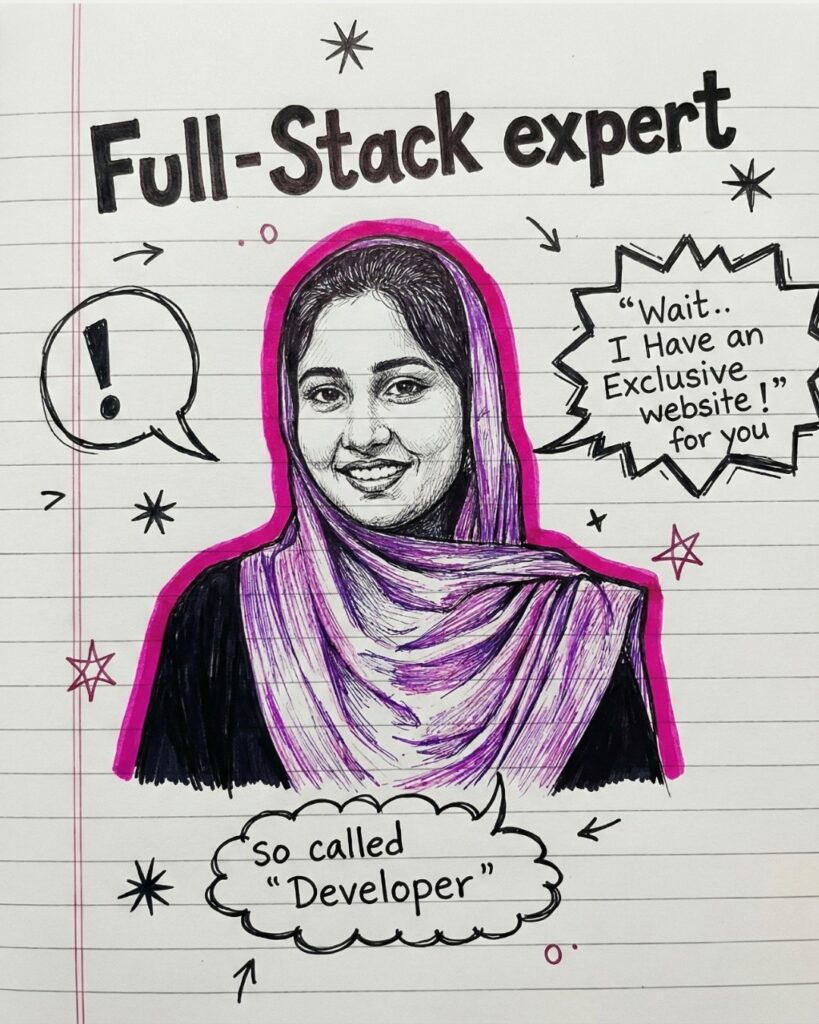 Full-Stack expert
!
“Wait..
I Have an
Exclusive
website!”
for you
so called
“Developer”